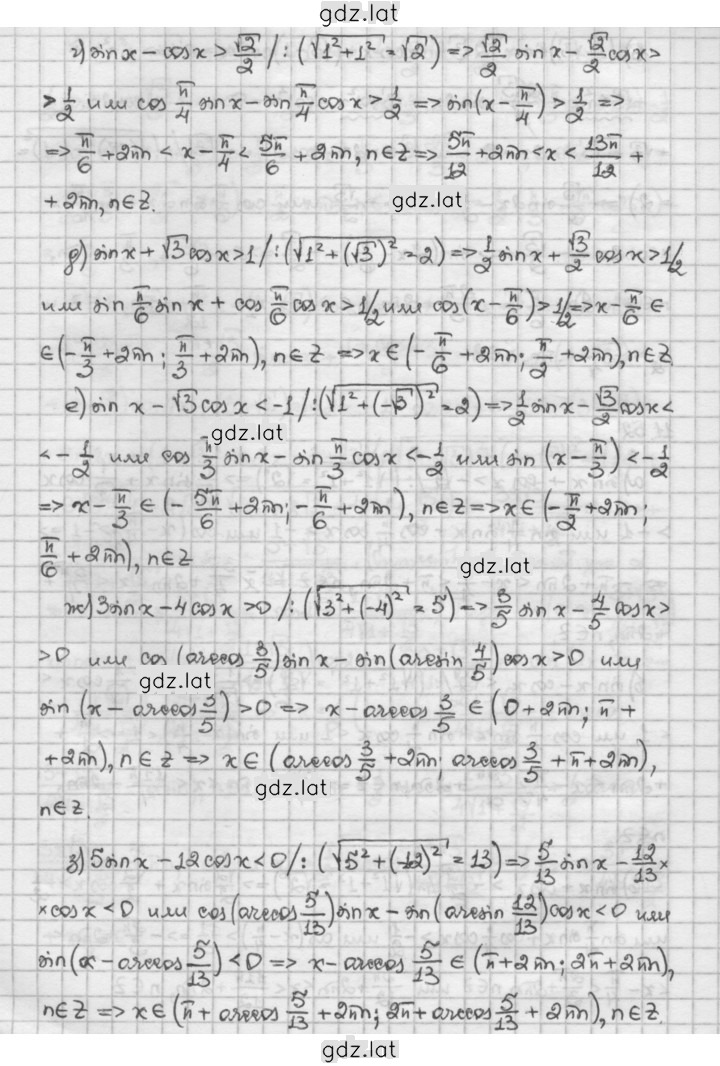 gdz.lat
г) sin x − cos x > √2/2 /: (√(1²+1²) = √2) => √2/2 sin x − √2/2 cos x >
> 1/2 или cos π/4 sin x − sin π/4 cos x > 1/2 => sin(x − π/4) > 1/2 =>
=> π/6 + 2πn < x − π/4 < 5π/6 + 2πn, n∈Z => 5π/12 + 2πn < x < 13π/12 +
+ 2πn, n∈Z.
gdz.lat
д) sin x + √3 cos x > 1 /: (√(1² + (√3)²) = 2) => 1/2 sin x + √3/2 cos x > 1/2
или sin π/6 sin x + cos π/6 cos x > 1/2 или cos(x − π/6) > 1/2 => x − π/6 ∈
∈ (−π/3 + 2πn; π/3 + 2πn), n∈Z => x ∈ (−π/6 + 2πn; π/2 + 2πn), n∈Z
е) sin x − √3 cos x < −1 /: (√(1² + (−√3)²) = 2) => 1/2 sin x − √3/2 cos x <
gdz.lat
< −1/2 или cos π/3 sin x − sin π/3 cos x < −1/2 или sin (x − π/3) < −1/2
=> x − π/3 ∈ (−5π/6 + 2πn; −π/6 + 2πn), n∈Z => x ∈ (−π/2 + 2πn;
π/6 + 2πn), n∈Z
gdz.lat
ж) 3 sin x − 4 cos x > 0 /: (√(3² + (−4)²) = 5) => 3/5 sin x − 4/5 cos x >
> 0 или cos (arccos 3/5) sin x − sin (arcsin 4/5) cos x > 0 или
gdz.lat
sin (x − arccos 3/5) > 0 => x − arccos 3/5 ∈ (0 + 2πn; π +
+ 2πn), n∈Z => x ∈ (arccos 3/5 + 2πn; arccos 3/5 + π + 2πn),
gdz.lat
n∈Z.
з) 5 sin x − 12 cos x < 0 /: (√(5² + (−12)²) = 13) => 5/13 sin x − 12/13 ×
× cos x < 0 или cos (arccos 5/13) sin x − sin (arcsin 12/13) cos x < 0 или
sin (x − arccos 5/13) < 0 => x − arccos 5/13 ∈ (π + 2πn; 2π + 2πn),
n∈Z => x ∈ (π + arccos 5/13 + 2πn; 2π + arccos 5/13 + 2πn), n∈Z.
gdz.lat